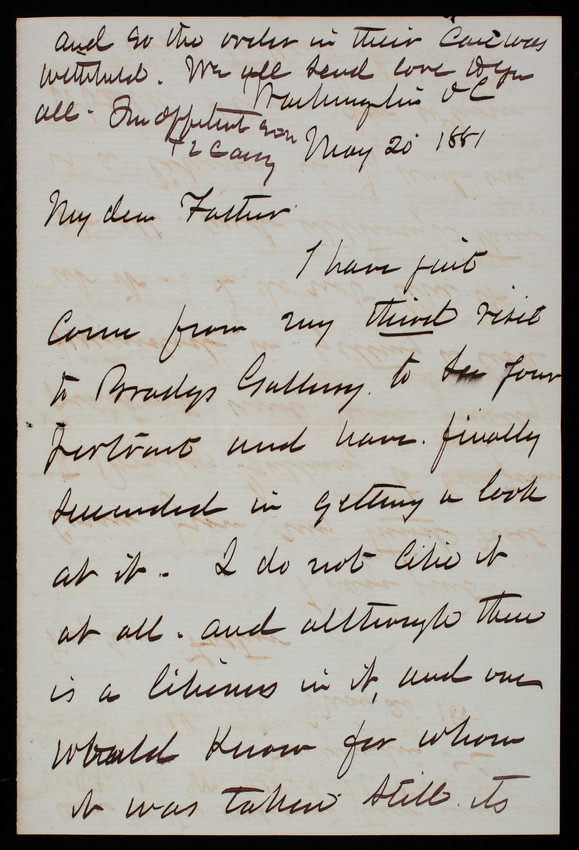 and so the order in their case was
withheld. We all send love to you
all. Your affectionate son
T L Casey
Washington DC
May 20 1881
My dear Father
I have just
come from my third visit
to Bradys Gallery. to see your
portrait and have. finally
succeeded in getting a look
at it. I do not like it
at all. and although there
is a likeness in it, and one
would know for whom
it was taken still its